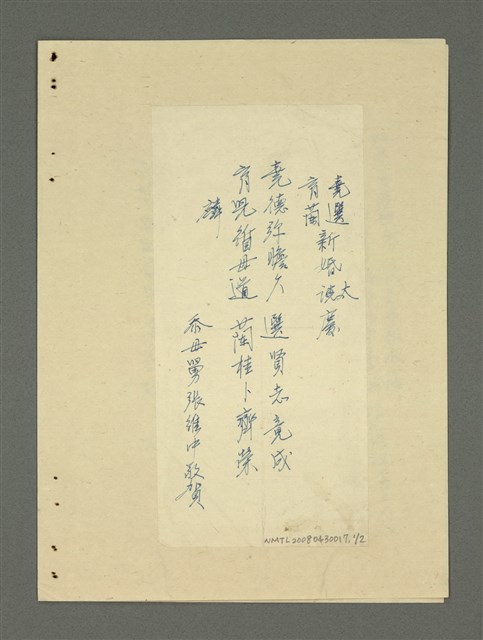 堯選
育蘭 新婚誌慶
大
堯德弥瞻久 選賢志竟成
育兒循母道 蘭桂卜齊榮
忝母舅張維中敬賀
NMTL20080430017, 1/2